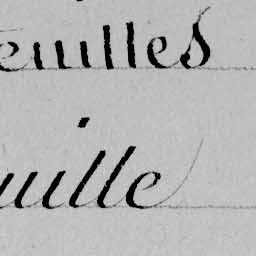 euilles
uille